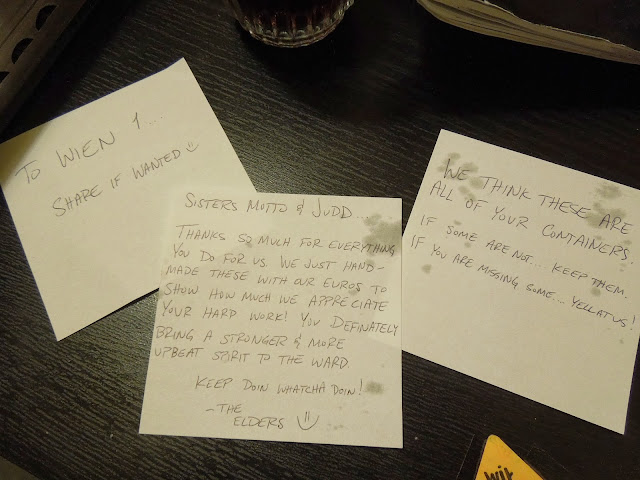 TO WIEN 1...
SHARE IF WANTED
SISTERS MOTTO & JUDD...
THANKS SO MUCH FOR EVERYTHING
YOU DO FOR US. WE JUST HAND-
MADE THESE WITH OUR EUROS TO
SHOW HOW MUCH WE APPRECIATE
YOUR HARD WORK! YOU DEFINATELY
BRING A STRONGER & MORE
UPBEAT SPIRIT TO THE WARD.
KEEP DOIN WHATCHA DOIN!
-THE
ELDERS
WE THINK THESE ARE
ALL OF YOUR CONTAINERS.
IF SOME ARE NOT... KEEP THEM.
IF YOU ARE MISSING SOME... YELLATUS!
wit